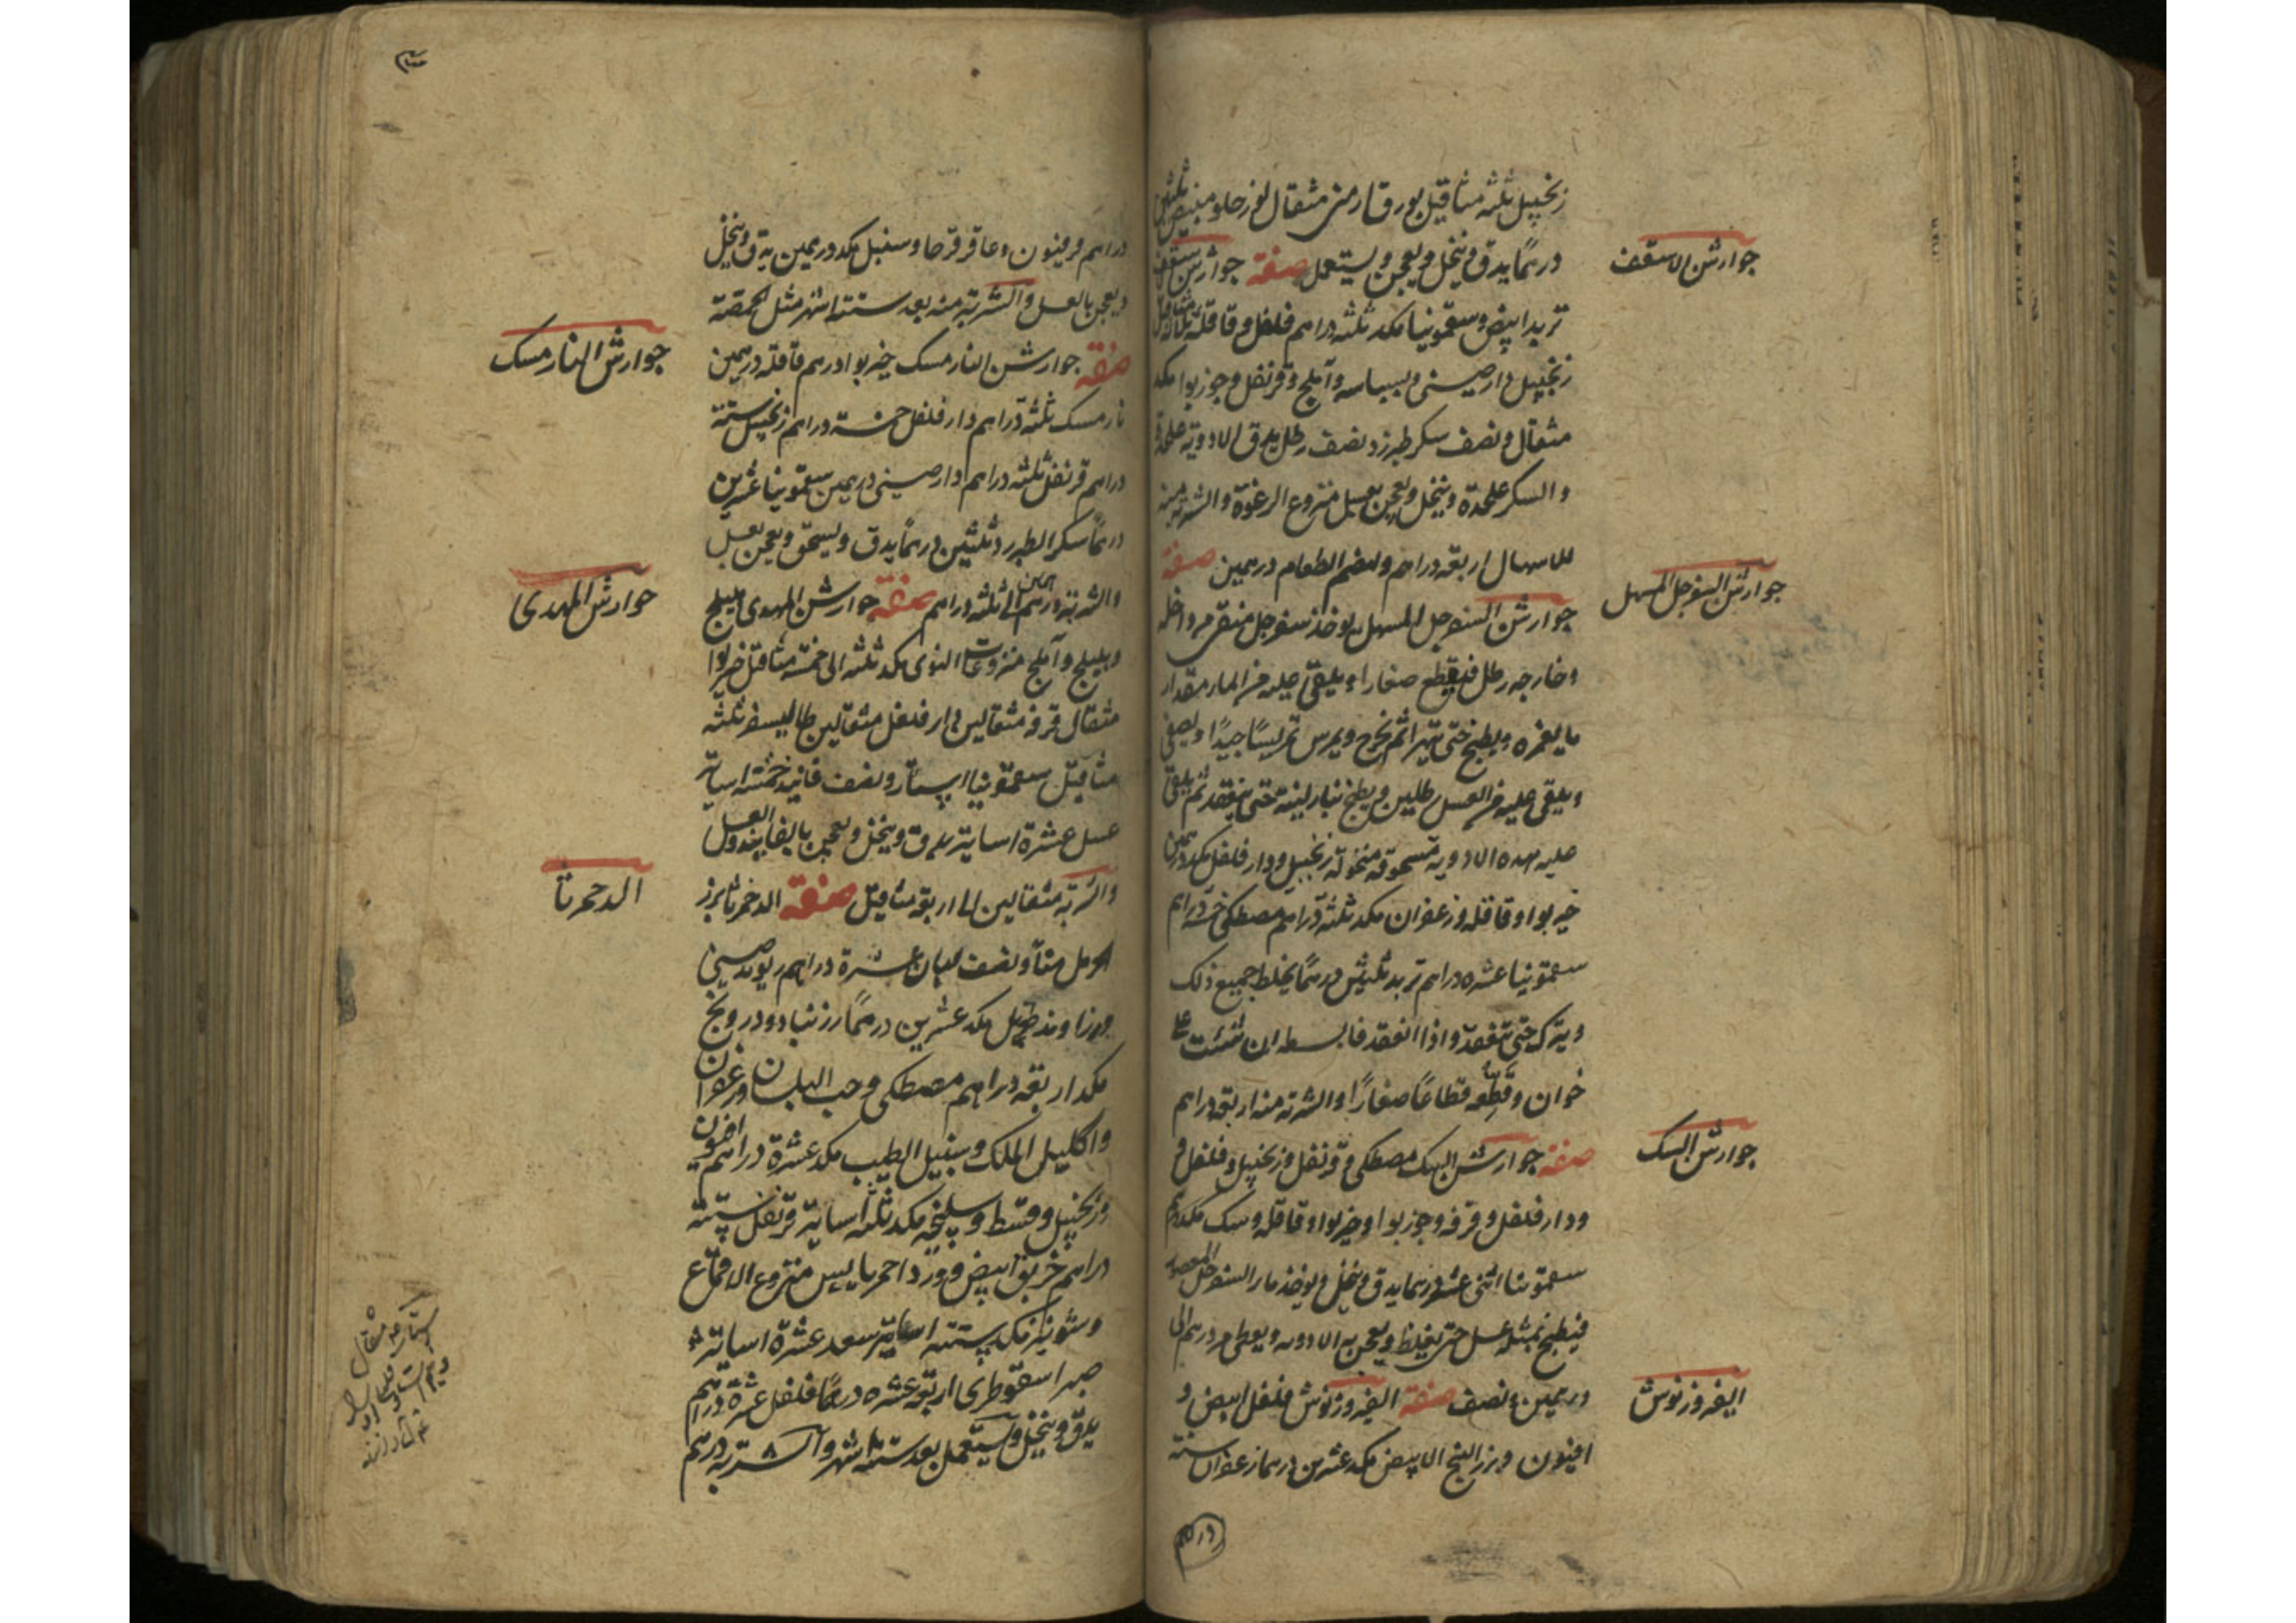 زنجبيل ثلثه مثاقيل بورق ارمنى مثقال لوز حلو مبيض ثلثين
درهمًا يدق وينخل ويعجن ويستعمل صفة جوارش اسقف
جوارش الاسقف
تربد ابيض وسقمونيا مكد ثلثه دراهم فلفل وقاقلة ثلثة مثاقيل
زنجبيل دارصينى وبسباسه وآملج وقرنفل وجوزبوا مكد
مثقال ونصف سكر طبرزد نصف رطل يدق الادوية علحدة
والسكر علحدة وينخل ويعجن بعسل منزوع الرغوة والشربة منه
للاسهال اربعة دراهم ولهضم الطعام درهمين صفة
جوارش السفرجل المسهل
جوارش السفرجل المسهل يوخذ سفرجل منقى من داخله
وخارجه رطل فيقطع صغارا ويلقى عليه من الماء مقدار
ما يغمره ويطبخ حتى يتهرا ثم يخرج ويمرس تمريسًا جيدًا ويصفى
ويلقى عليه من العسل رطلين ويطبخ بنار لينة حتى ينعقد ثم يلقى
عليه هذه الادويه مسحوقه منخولة زنجبيل ودارفلفل مكد درهمين
خيربوا وقاقله وزعفران مكد ثلثة دراهم مصطكى خمسة دراهم
سقمونيا عشره دراهم تربد ثلثين درهمًا يخلط جميع ذلك
ويترك حتى ينعقد واذا انعقد فابسطه ان شئت على
خوان وقطعه قطاعًا صغارًا والشربة منه اربعة دراهم
جوارش السك
صفة جوارش السك مصطكى وقرنفل وزنجبيل وفلفل و
ودارفلفل وقرفه وجوزبوا وخيربوا وقاقله وسك مكد درهم
سقمونيا اثنى عشر درهما يدق وينخل ويوخذ ماء السفرجل المعصور
فيطبخ بمثله عسل حتى يغلظ ويعجن به الادويه ويعطى من درهم الى
درهمين ونصف صفة الفيروزنوش فلفل ابيض و
الفيروزنوش
افيون وبزر البنج الابيض مكد عشرين درهما زعفران ستة
دراهم فرفيون وعاقرقرحا وسنبل مكد درهمين يدق وينخل
ويعجن بالعسل والشربة منه بعد ستة اشهر مثل الحمصة
جوارش النارمسك
صفة جوارش النارمسك خيربوا درهم قاقله درهمين
نارمسك ثلثه دراهم دارفلفل خمسة دراهم زنجبيل ستة
دراهم قرنفل ثلثه دراهم دارصينى درهمين سقمونيا عشرين
درهمًا سكر الطبرزد ثلثين درهمًا يدق ويسحق ويعجن بعسل
والشربة درهمين الى ثلثه دراهم صفة جوارش المهدى هليلج
جوارش المهدى
وبليلج وآملج منزوعات النوى مكد ثلثه الى خمسة مثاقيل خيربوا
مثقال قرفه مثقالين دارفلفل مثقالين طاليسفر ثلثه
مثاقيل سقمونيا استار ونصف فانيد خمسة اساتير
عسل عشرة اساتير يدق وينخل ويعجن بالفانيد والعسل
والشربة مثقالين الى اربعة مثاقيل صفة الدحمرثا بزر
الدحمرثا
الحرمل منًا ونصف لبان عشرة دراهم ريوند صينى
وزراوند طويل مكد عشرين درهمًا زرنباد ودرونج
مكد اربعه دراهم مصطكى وحب البلسان وزعفران
واكليل الملك وسنبل الطيب مكد عشرة دراهم افيون
وزنجبيل وقسط وسليخه مكد ثلثه اساتير قرنفل ستة
دراهم خربق ابيض وورد احمر يابس منزوع الاقماع
وشونيز مكد ستة اساتير سعد عشرة اساتير
صبر اسقوطرى اربعة عشره درهمًا فلفل عشرة دراهم
يدق وينخل ويستعمل بعد ستة اشهر والشربة درهم